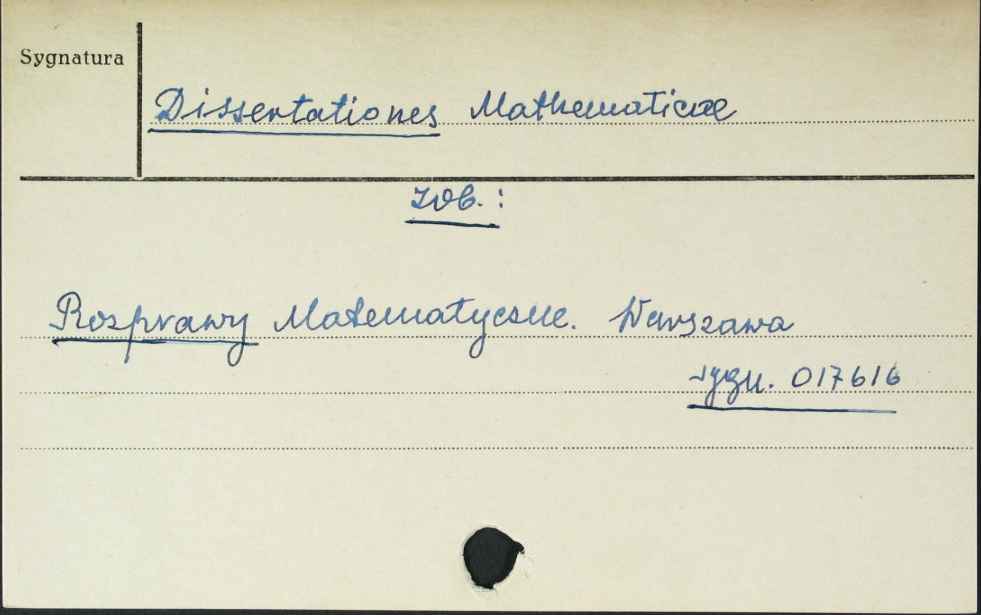 Sygnatura
Dissertationes Mathematicae
zob. :
Rozprawy Matematyczne. Warszawa
sygn. 017616